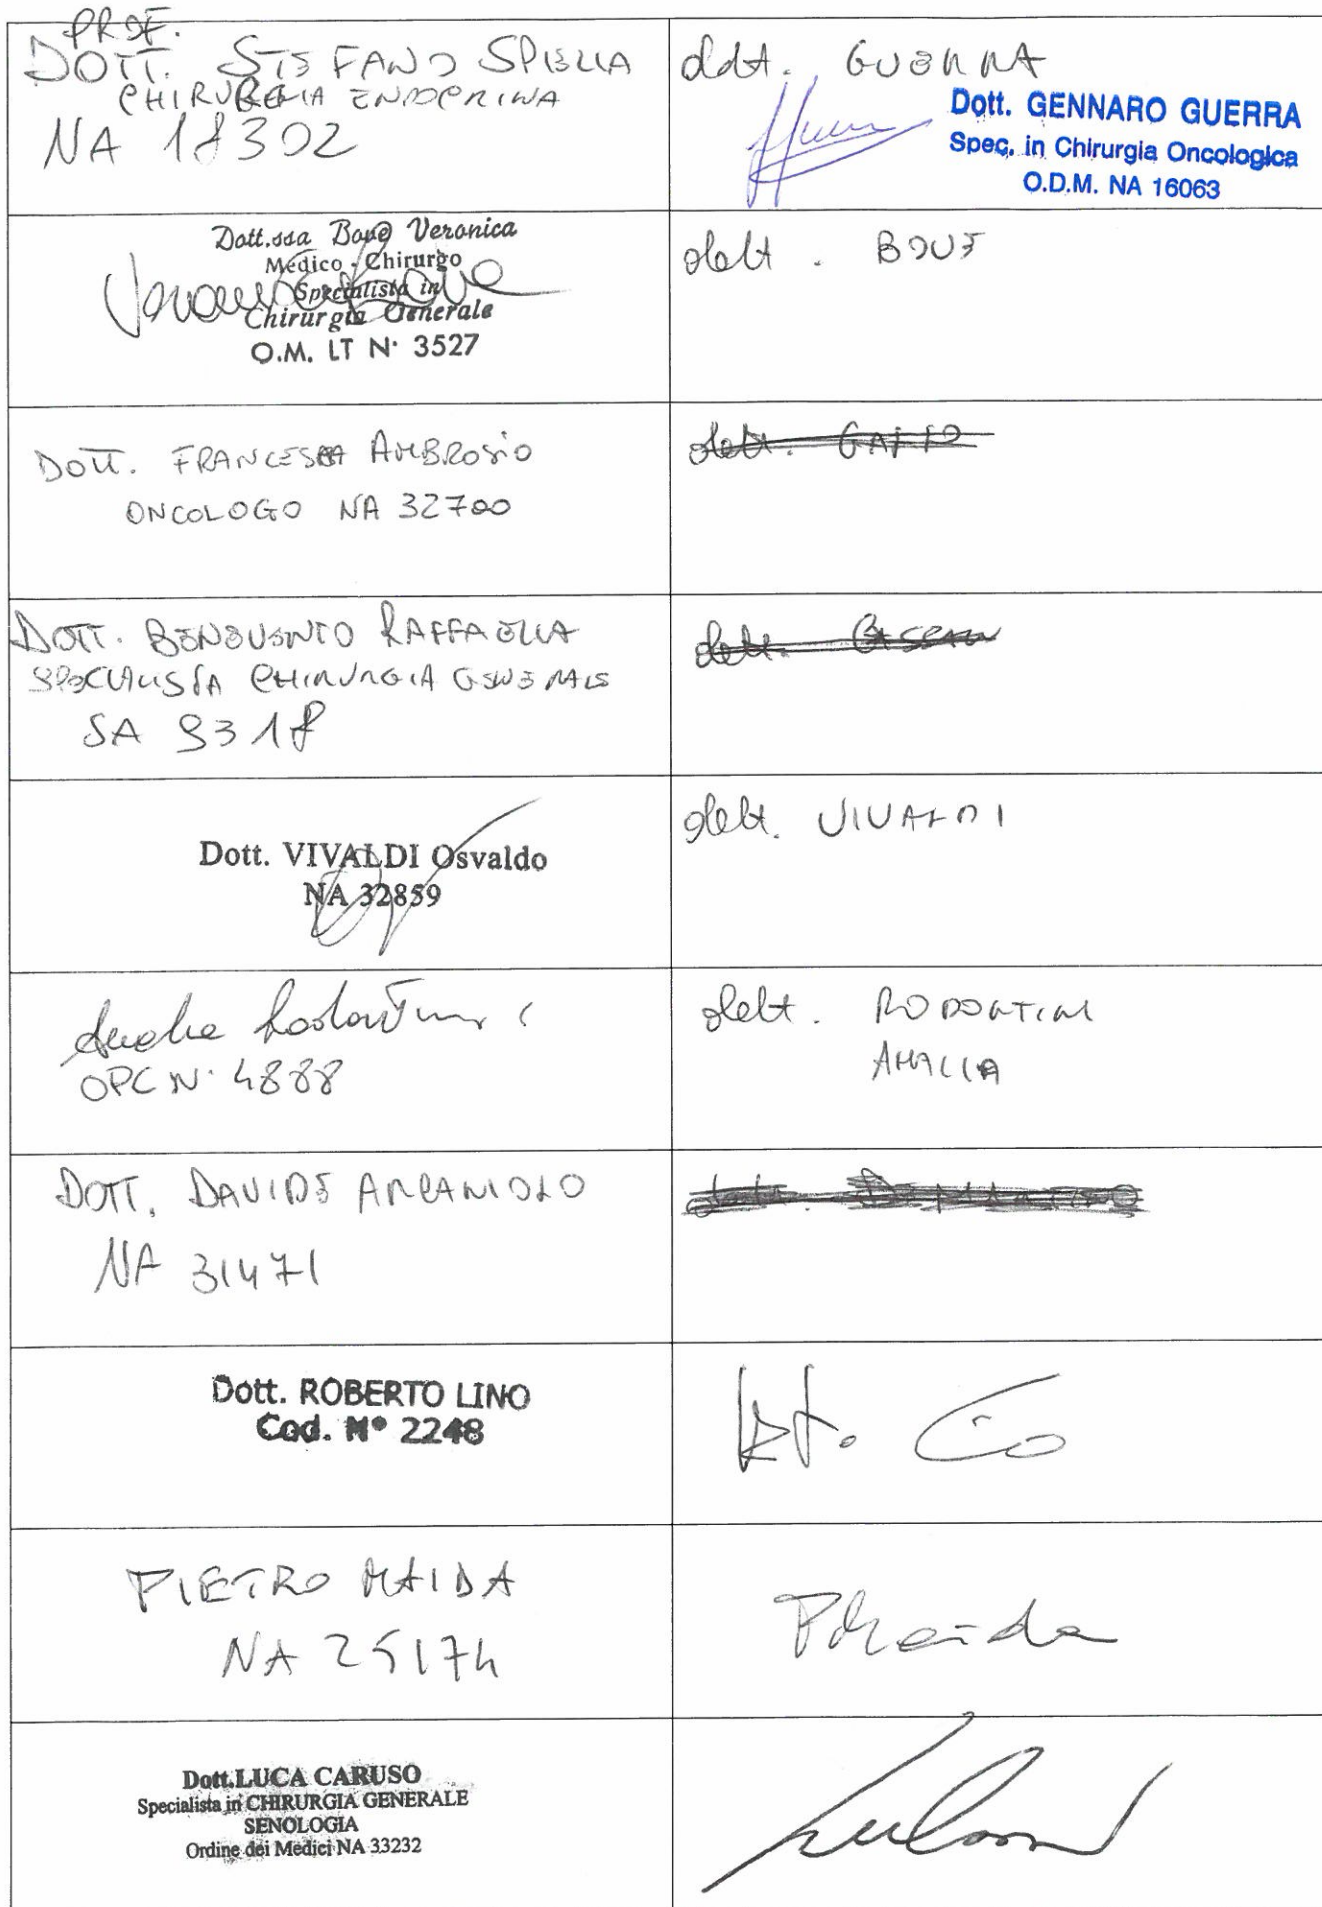 PROF.
DOTT. STEFANO SPIEZIA
CHIRURGIA ENDOCRINA
NA 18302
dott. GUERRA
Dott. GENNARO GUERRA
Spec. in Chirurgia Oncologica
O.D.M. NA 16063
Dott.ssa Bove Veronica
Medico - Chirurgo
Specialista in
Chirurgia Generale
O.M. LT N° 3527
dott. BOVE
DOTT. FRANCESCA AMBROSIO
ONCOLOGO NA 32700
dott.
DOTT. BENEVENTO RAFFAELLA
SPECIALISTA CHIRURGIA GENERALE
SA
dott.
Dott. VIVALDI Osvaldo
NA 32859
dott. VIVALDI
OPC N. 4888
dott.
AMALIA
DOTT. DAVIDE ARCANIOLO
NA 31471
Dott. ROBERTO LINO
Cod. N° 2248
PIETRO MAIDA
NA 25174
PMaida
Dott. LUCA CARUSO
Specialista in CHIRURGIA GENERALE
SENOLOGIA
Ordine dei Medici NA 33232